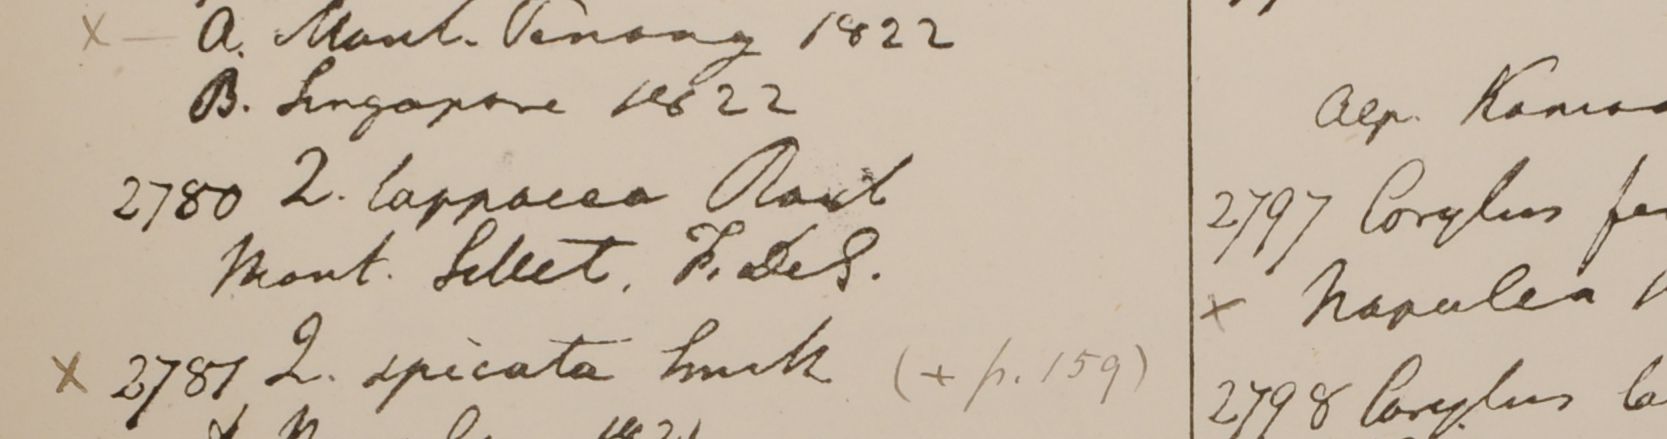 x — A. Mont. Penang 1822
B. Singapore 1822
2780 Q. lappacea Roxb
Mont. Sillet, F. De S.
x 2781 Q. spicata Smith (+ p. 159)
Alp. Kamao
2797 Corylus fe
x Napalea
2798 Corylus la